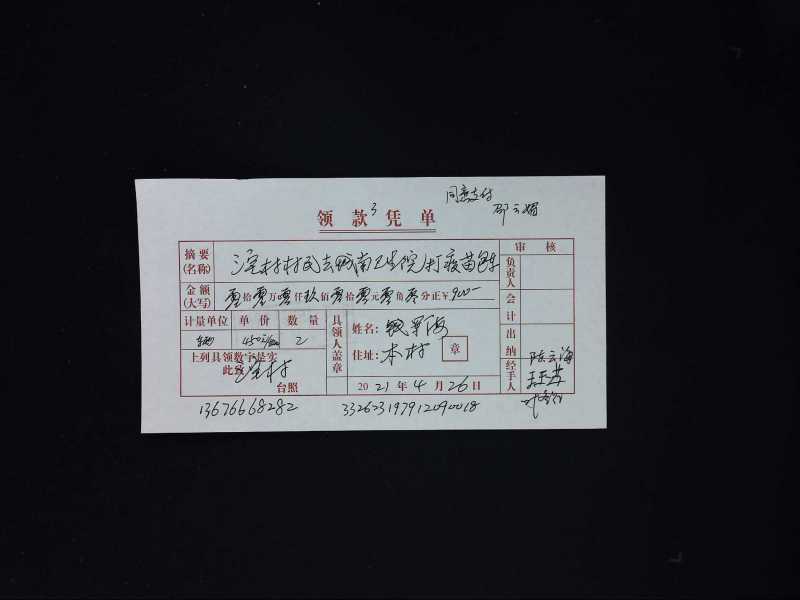 同意支付
邵云娟
3
领款凭单
摘要(名称) 淀村村民去城南卫生院打疫苗包车
审核
金额(大写) 零拾零万零仟玖佰零拾零元零角零分正￥900—
负责人
会计
计量单位 单价 数量
辆 450元/辆 2
具领人盖章
姓名：钱军海
住址：本村
章
出纳
上列具领数字是实
此致 淀村
台照
2021年4月26日
经手人 陈云海
13676668282 332623197912090018